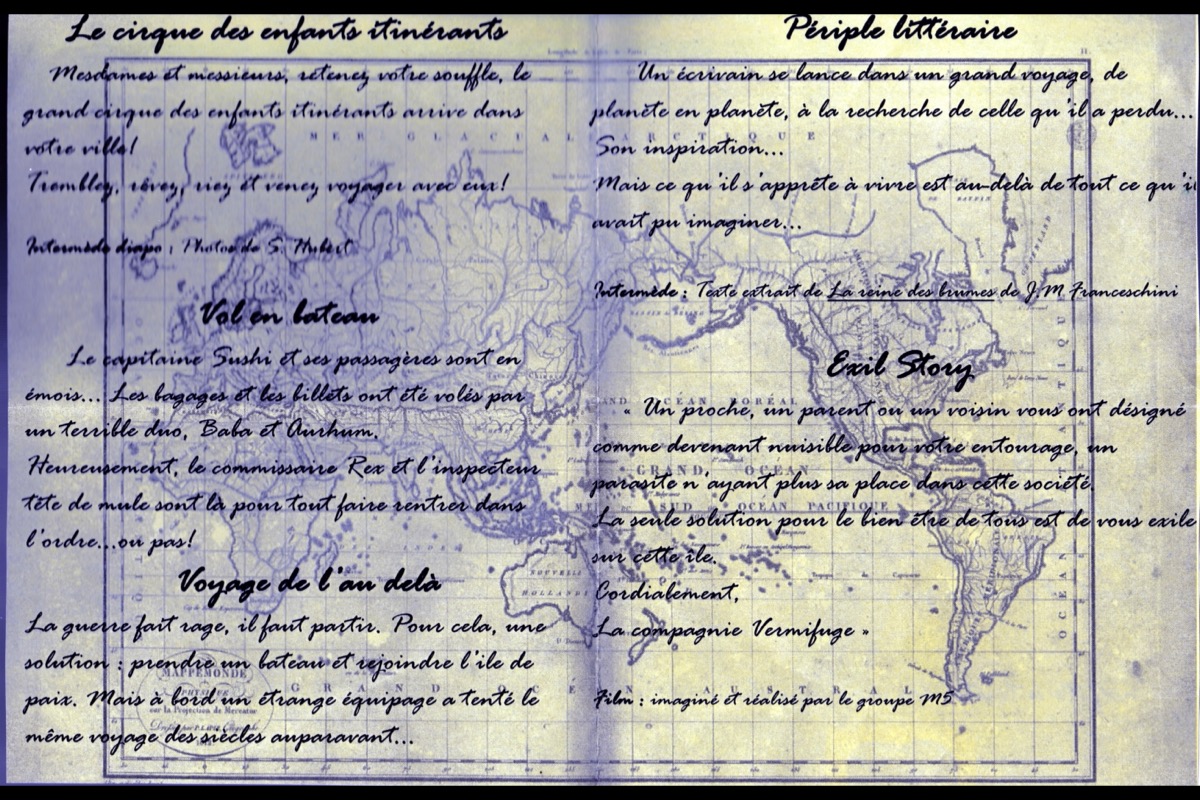 Le cirque des enfants itinérants
Mesdames et messieurs, retenez votre souffle, le
grand cirque des enfants itinérants arrive dans
votre ville!
Tremblez, rêvez, riez et venez voyager avec eux!
Intermède diapo : Photos de S. Hubert
Vol en bateau
Le capitaine Sushi et ses passagères sont en
émois... Les bagages et les billets ont été volés par
un terrible duo, Baba et Aurhum.
Heureusement, le commissaire Rex et l'inspecteur
tête de mule sont là pour tout faire rentrer dans
l'ordre...ou pas!
Voyage de l'au delà
La guerre fait rage, il faut partir. Pour cela, une
solution : prendre un bateau et rejoindre l'ile de
paix. Mais à bord un étrange équipage a tenté le
même voyage des siècles auparavant...
MAPPEMONDE
PHYSIQUE
sur la Projection de Mercator
Périple littéraire
Un écrivain se lance dans un grand voyage, de
planète en planète, à la recherche de celle qu'il a perdu...
Son inspiration...
Mais ce qu'il s'apprête à vivre est au-delà de tout ce qu'il
avait pu imaginer...
Intermède : Texte extrait de La reine des brumes de J.M Franceschini
Exil Story
« Un proche, un parent ou un voisin vous ont désigné
comme devenant nuisible pour votre entourage, un
parasite n'ayant plus sa place dans cette société.
La seule solution pour le bien être de tous est de vous exile
sur cette île.
Cordialement,
La compagnie Vermifuge »
Film : imaginé et réalisé par le groupe M5
MER GLACIAL ARCTIQUE
GRAND OCÉAN BORÉAL
GRAND OCEAN
SUD OCEAN PACIFIQUE
NOUVELLE
HOLLANDE
GRAND OCÉAN AUSTRAL